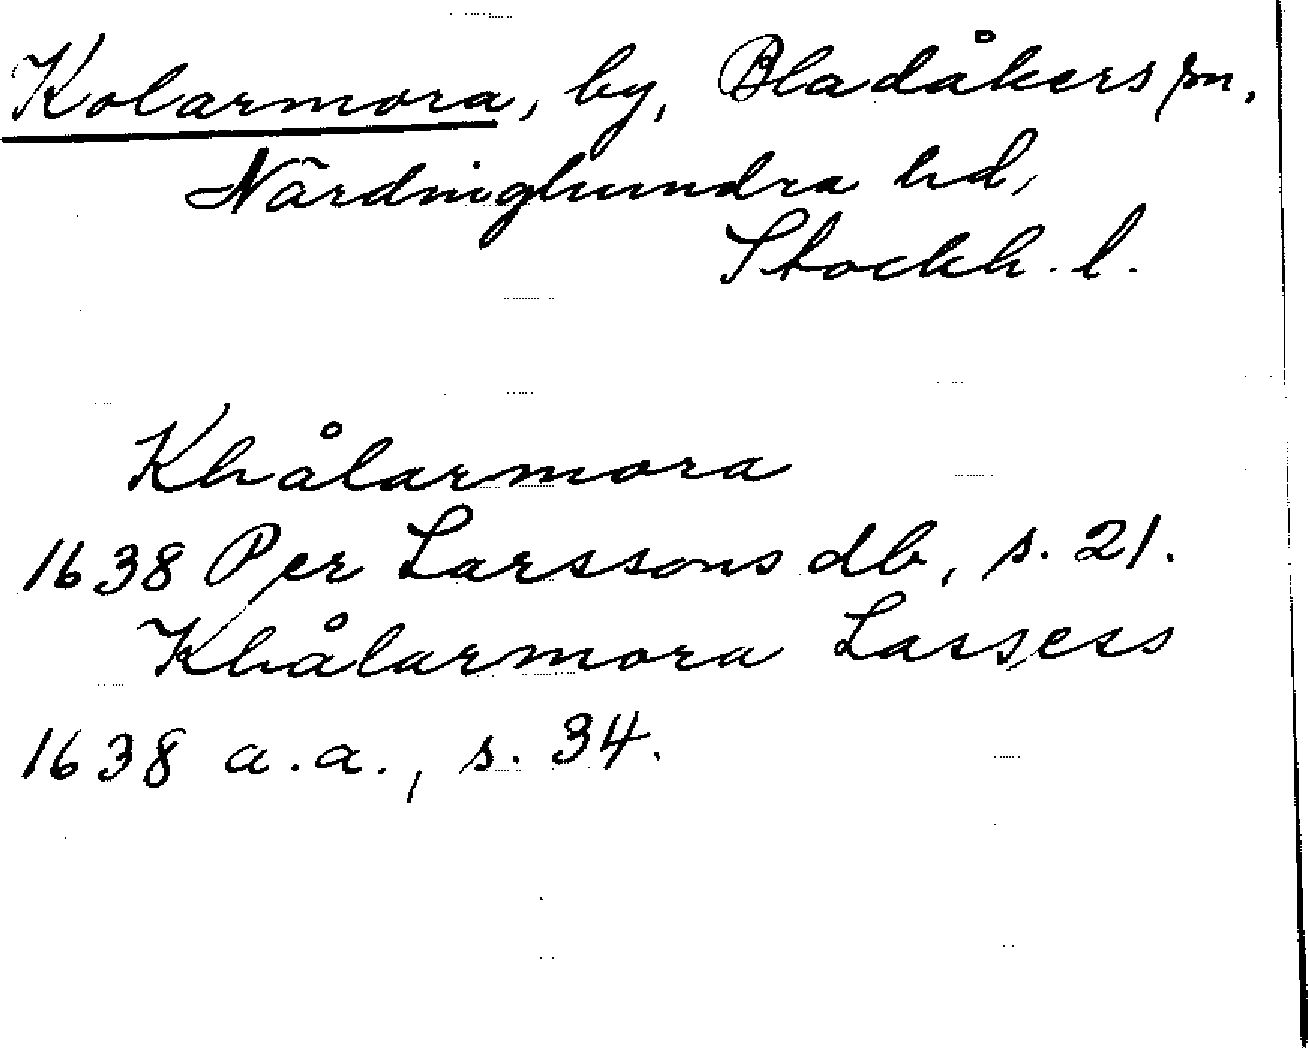 Kolarmora, by, Bladåkers sn,
Närdinghundra hd,
Stockh. l.
Khålarmora
1638 Per Larssons db, s. 21.
Khålarmora Lassess
1638 a.a., s. 34.